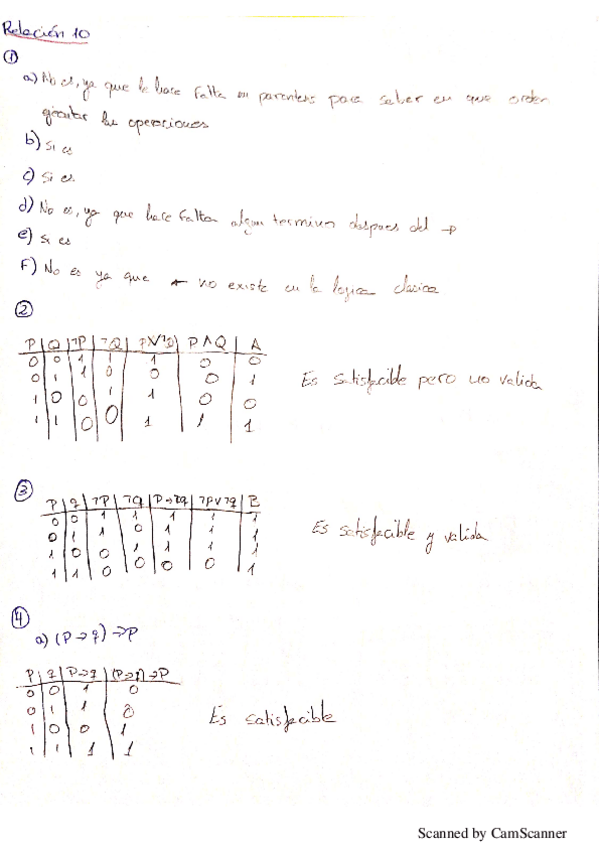 Relación 10
①
a) No es, ya que le hace falta un parentesis para saber en que orden
ejecutar las operaciones
b) Si es
c) Si es
d) No es, ya que hace falta algun termino despues del →
e) Si es
F) No es ya que ← no existe en la logica clasica
②
P Q ¬P ¬Q P∨¬Q P∧Q A
0 0 1 1 1 0 0
0 1 1 0 0 0 1
1 0 0 1 1 0 0
1 1 0 0 1 1 1
Es satisfacible pero no valida
③
P q ¬P ¬q P→¬q ¬P∨¬q B
0 0 1 1 1 1 1
0 1 1 0 1 1 1
1 0 0 1 1 1 1
1 1 0 0 0 0 1
Es satisfacible y valida
④
a) (P→q)→P
P q P→q (P→q)→P
0 0 1 0
0 1 1 0
1 0 0 1
1 1 1 1
Es satisfacible
Scanned by CamScanner